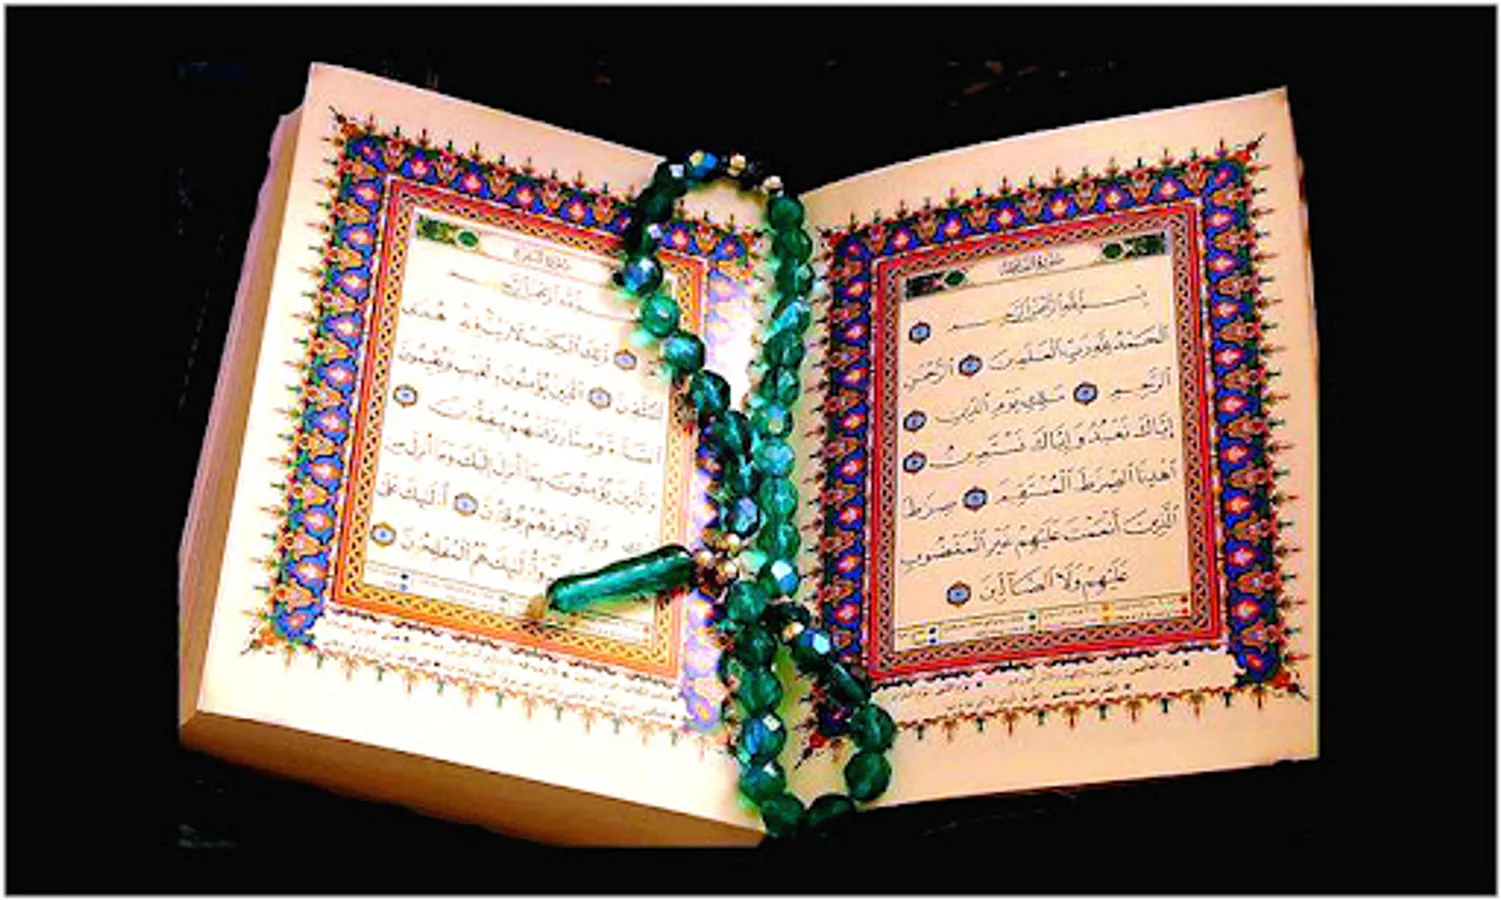 سُورَةُ الفَاتِحَة
بِسْمِ ٱللَّهِ ٱلرَّحْمَٰنِ ٱلرَّحِيمِ
ٱلْحَمْدُ لِلَّهِ رَبِّ ٱلْعَٰلَمِينَ ٱلرَّحْمَٰنِ
ٱلرَّحِيمِ مَٰلِكِ يَوْمِ ٱلدِّينِ
إِيَّاكَ نَعْبُدُ وَإِيَّاكَ نَسْتَعِينُ
ٱهْدِنَا ٱلصِّرَٰطَ ٱلْمُسْتَقِيمَ صِرَٰطَ
ٱلَّذِينَ أَنْعَمْتَ عَلَيْهِمْ غَيْرِ ٱلْمَغْضُوبِ
عَلَيْهِمْ وَلَا ٱلضَّآلِّينَ
سُورَةُ البَقَرَة
بِسْمِ ٱللَّهِ ٱلرَّحْمَٰنِ
ذَٰلِكَ ٱلْكِتَٰبُ لَا رَيْبَ فِيهِ هُدًى
لِّلْمُتَّقِينَ ٱلَّذِينَ يُؤْمِنُونَ بِٱلْغَيْبِ وَيُقِيمُونَ
ٱلصَّلَوٰةَ وَمِمَّا رَزَقْنَٰهُمْ يُنفِقُونَ
وَٱلَّذِينَ يُؤْمِنُونَ بِمَآ أُنزِلَ إِلَيْكَ وَمَآ أُنزِلَ مِن
قَبْلِكَ وَبِٱلْءَاخِرَةِ هُمْ يُوقِنُونَ أُو۟لَٰٓئِكَ عَلَىٰ
وَأُو۟لَٰٓئِكَ هُمُ ٱلْمُفْلِحُونَ